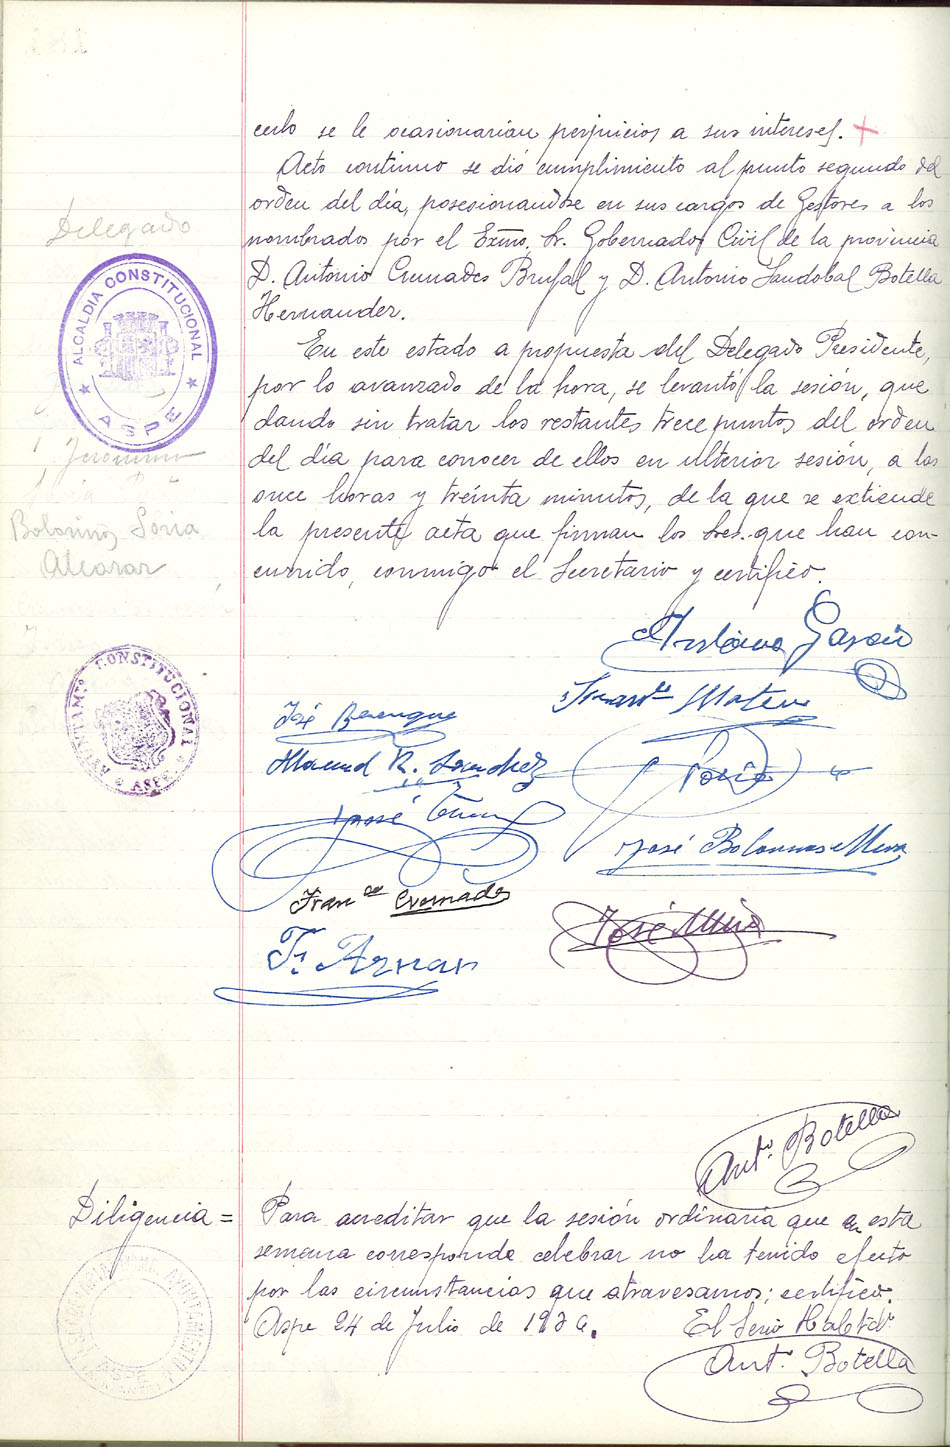 cerlo se le ocasionarian perjuicios a sus intereses.
Acto continuo se dió cumplimiento al punto segundo del
orden del día, posesionandose en sus cargos de Gestores a los
nombrados por el Exmo. Sr. Gobernador Civil de la provincia
D. Antonio Cremades Brufal y D. Antonio Sandobal Botella
Hernandez.
En este estado a propuesta del Delegado Presidente,
por lo avanzado de la hora, se levantó la sesión, que
dando sin tratar los restantes trece puntos del orden
del día para conocer de ellos en ulterior sesión, a las
once horas y treinta minutos, de la que se extiende
la presente acta que firman los Sres. que han con-
currido, conmigo el Secretario y certifico.
Delegado
ALCALDIA CONSTITUCIONAL
ASPE
Jeronimo
Bolorinos Soria
Alcaraz
AYUNTAMTO CONSTITUCIONAL
ASPE
García
Franco Mateu
José Berenguer
Manuel R. Sanchez
Soria
José
José Bolorinos Mira
Franco Cremades
José Miró
F. Aznar
Anto. Botella
Diligencia =
Para acreditar que la sesión ordinaria que en esta
semana corresponde celebrar no ha tenido efecto
por las circunstancias que atravesamos; certifico.
Aspe 24 de Julio de 1936.
El Secrio Habtdo
Anto. Botella
AYUNTAMIENTO
ASPE